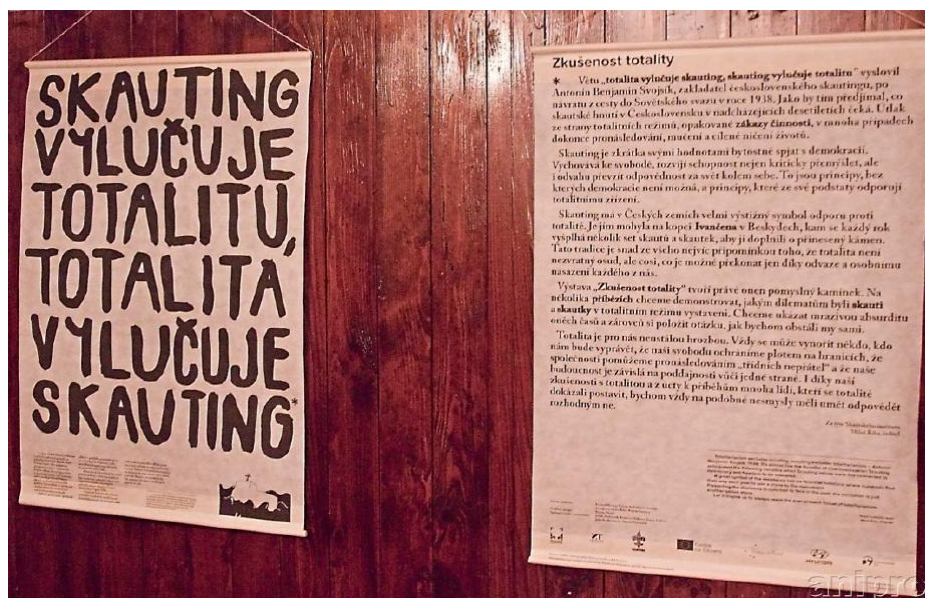 SKAUTING
VYLUČUJE
TOTALITU,
TOTALITA
VYLUČUJE
SKAUTING*
Zkušenost totality
* Větu „totalita vylučuje skauting, skauting vylučuje totalitu" vyslovil
Antonín Benjamin Svojsík, zakladatel československého skautingu, po
návratu z cesty do Sovětského svazu v roce 1938. Jako by tím předjímal, co
skautské hnutí v Československu v nadcházejících desetiletích čeká. Útlak
ze strany totalitních režimů, opakované zákazy činnosti, v mnoha případech
dokonce pronásledování, mučení a cílené ničení životů.
Skauting je zkrátka svými hodnotami bytostně spjat s demokracií.
Vychovává ke svobodě, rozvíjí schopnost nejen kriticky přemýšlet, ale
i odvahu převzít odpovědnost za svět kolem sebe. To jsou principy, bez
kterých demokracie není možná, a principy, které ze své podstaty odporují
totalitnímu zřízení.
Skauting má v Českých zemích velmi výstižný symbol odporu proti
totalitě. Je jím mohyla na kopci Ivančena v Beskydech, kam se každý rok
vyšplhá několik set skautů a skautek, aby ji doplnili o přinesený kámen.
Tato tradice je snad ze všeho nejvíc připomínkou toho, že totalita není
nezvratný osud, ale cosi, co je možné překonat jen díky odvaze a osobnímu
nasazení každého z nás.
Výstava „Zkušenost totality" tvoří právě onen pomyslný kamínek. Na
několika příbězích chceme demonstrovat, jakým dilematům byli skauti
a skautky v totalitním režimu vystaveni. Chceme ukázat mrazivou absurditu
oněch časů a zároveň si položit otázku, jak bychom obstáli my sami.
Totalita je pro nás neustálou hrozbou. Vždy se může vynořit někdo, kdo
nám bude vyprávět, že naši svobodu ochráníme plotem na hranicích, že
společnosti pomůžeme pronásledováním „třídních nepřátel" a že naše
budoucnost je závislá na poddajnosti vůči jedné straně. I díky naší
zkušenosti s totalitou a z úcty k příběhům mnoha lidí, kteří se totalitě
dokázali postavit, bychom vždy na podobné nesmysly měli umět odpovědět
rozhodným ne.
anipro